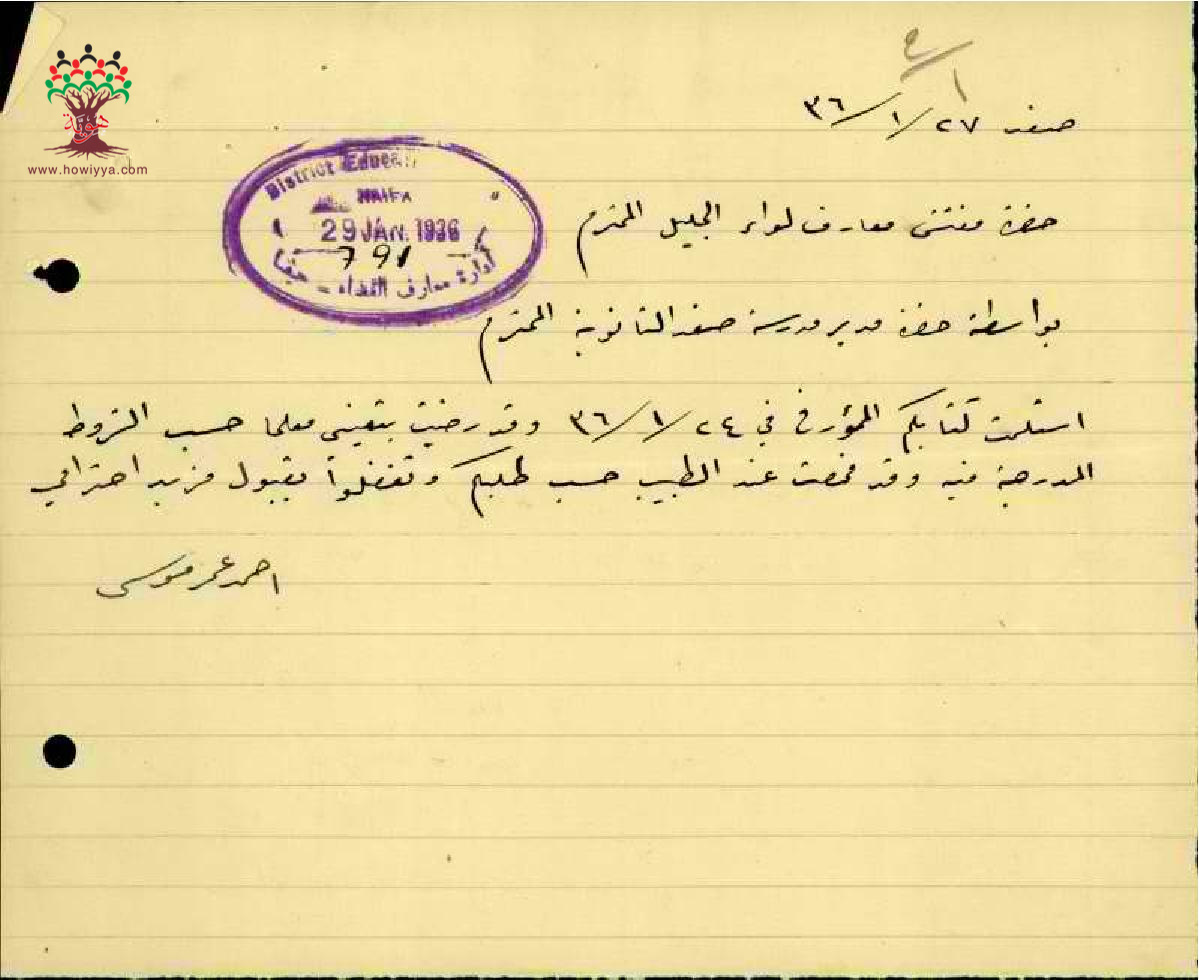 صفد ٢٧/١/٣٦
هوية
www.howiyya.com
District Educati
HAIFA
29 JAN. 1936
791
ادارة معارف القضاء - حيفا
حضرة مفتش معارف لواء الجليل المحترم
بواسطة حضرة مدير مدرسة صفد الثانوية المحترم
استلمت كتابكم المؤرخ في ٢٤/١/٣٦ وقد رضيت بتعييني معلما حسب الشروط
المدرجة فيه وقد فحصت عند الطبيب حسب طلبكم وتفضلوا بقبول مزيد احترامي
احمد عمر موسى